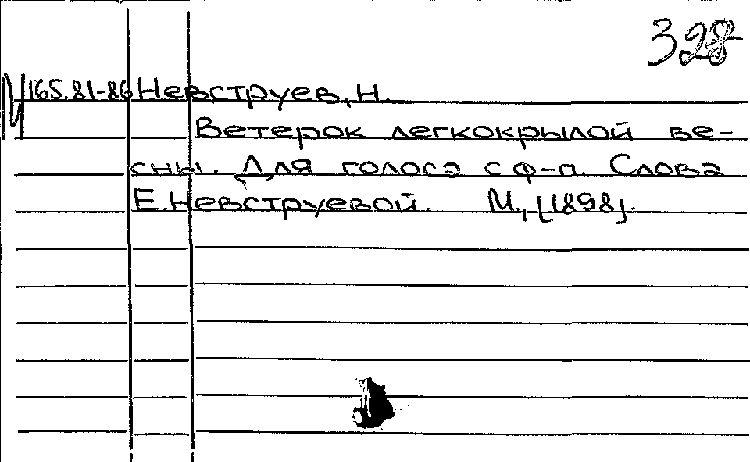 328
М 165.81-86 Невструев, Н.
Ветерок легкокрылой ве-
сны. Для голоса с ф-п. Слова
Е. Невструевой. М., [1898].